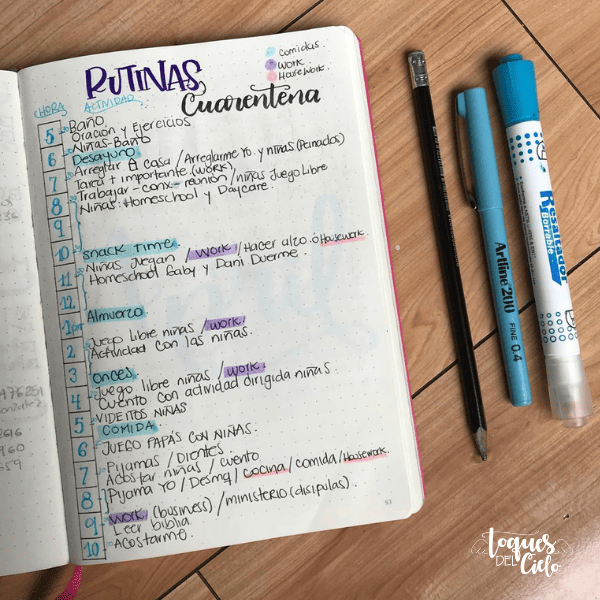 RUTINAS
Cuarentena
comidas.
WORK.
HouseWork.
HORA ACTIVIDAD
5 Baño
Oración y Ejercicios
6 Niñas-Baño
Desayuno
6 Arreglar casa / Arreglarme Yo y niñas (Peinados)
7 Tarea + importante (WORK)
Trabajar - conx - reunión / niñas Juego Libre
8 Niñas: Homeschool y Daycare.
9
10 Snack Time
Niñas Juegan / WORK / Hacer algo ó HouseWork.
11 Homeschool Baby y Dani Duerme.
12
Almuerzo
1pm
Juego Libre niñas / WORK.
2 Actividad con las niñas.
3 onces
Juego libre niñas / WORK.
4 Cuento con actividad dirigida niñas.
VIDEITOS NIÑAS
5 COMIDA
6 JUEGO PAPÁS CON NIÑAS.
Pijamas / Dientes
7 Acostar niñas / Cuento
8 Pijama YO / Desmaq / cocina / comida / HouseWork
9 WORK (business) / MINISTERIO (disípulas).
Leer biblia
10 Acostarme.
Artline 200
FINE 0.4
Resaltador
Borrable
Toques
DEL Cielo